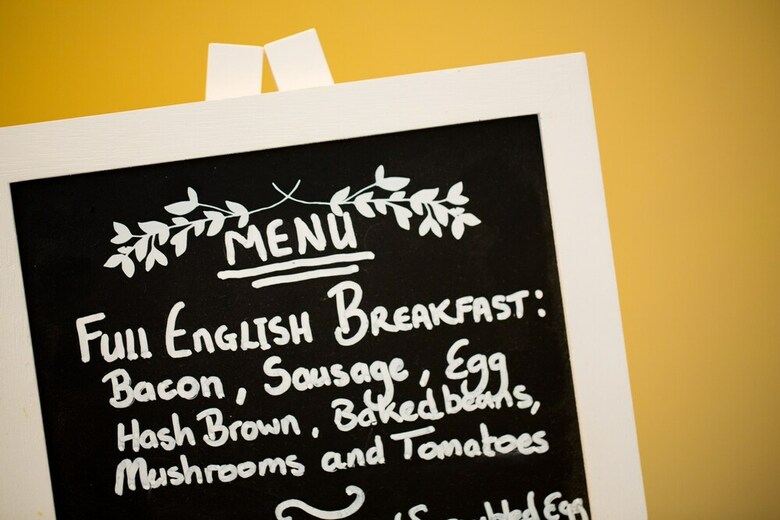 MENU
FULL ENGLISH BREAKFAST:
Bacon, Sausage, Egg
Hash Brown, Baked beans,
Mushrooms and Tomatoes
Egg